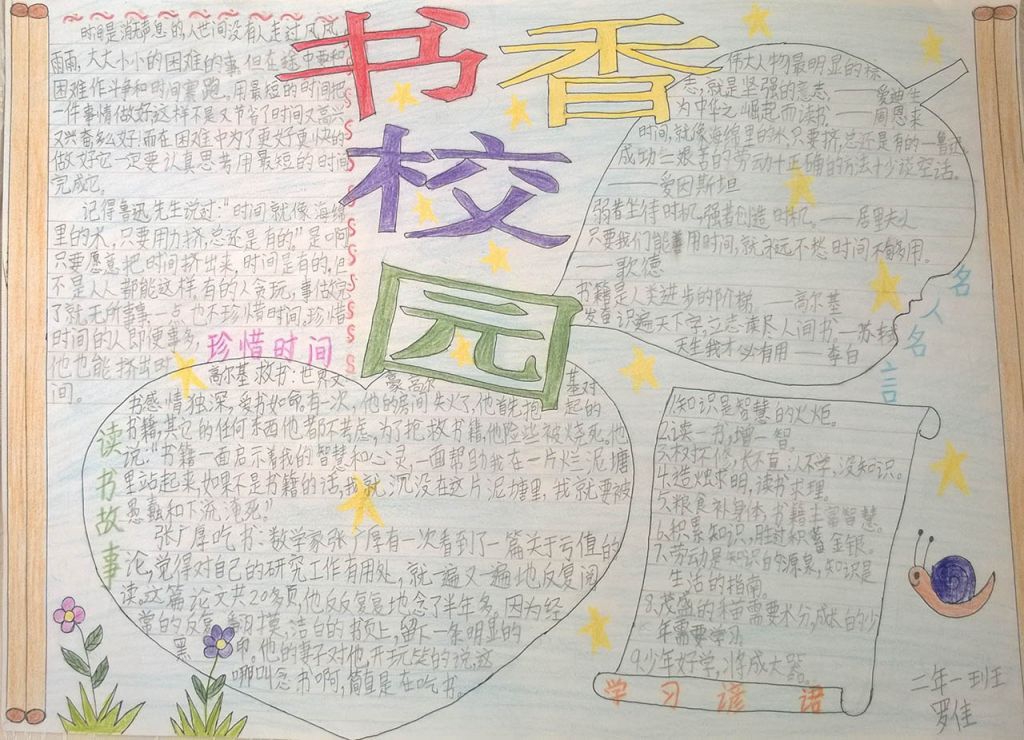 书香
校
园
时间是消声息的,人世间没有人走过风风
雨雨,大大小小的困难的事,但在途中要和
困难作斗争和时间赛跑,用最短的时间把
一件事情做好这样不是又节省了时间又高兴
又兴奋多么好,而在困难中为了更好更快的
做好它一定要认真思考用最短的时间
完成它。
记得鲁迅先生说过:“时间就像海绵
里的水,只要用力挤,总还是有的。”是啊
只要愿意把时间挤出来,时间是有的,但
不是人人都能这样,有的人贪玩,事做完
了就无所事事,一点也不珍惜时间,珍惜
时间的人即便事多,
他也能挤出时
间。
珍惜时间
伟大人物最明显的标
志,就是坚强的意志。——爱迪生
为中华之崛起而读书。——周恩来
时间,就像海绵里的水,只要挤,总还是有的—鲁迅
成功=艰苦的劳动+正确的方法+少谈空话。
——爱因斯坦
弱者坐待时机,强者创造时机。——居里夫人
只要我们能善用时间,就永远不愁时间不够用。
——歌德
书籍是人类进步的阶梯。——高尔基
发奋识遍天下字,立志读尽人间书—苏轼
天生我才必有用——李白
名人名言
高尔基救书:世界文豪高尔基对
书感情独深,爱书如命,有一次,他的房间失火了,他首先抱起的
书籍,其它的任何东西他都不考虑,为了抢救书籍,他险些被烧死。他
说:“书籍一面启示着我的智慧和心灵,一面帮助我在一片烂泥塘
里站起来,如果不是书籍的话,我就沉没在这片泥塘里,我就要被
愚蠢和下流淹死。”
张广厚吃书:数学家张广厚有一次看到了一篇关于亏值的
论,觉得对自己的研究工作有用处,就一遍又一遍地反复阅
读。这篇论文共20多页,他反反复复地念了半年多。因为经
常的反复翻摸,洁白的书页上,留下一条明显的
黑印。他的妻子对他,开玩笑的说,这
哪叫念书啊,简直是在吃书。
读书故事
1.知识是智慧的火炬。
2.读一书,增一智。
3.不对不倒,长不直,人不学,没知识。
4.造烛求明,读书求理。
5.粮食补身体书籍丰富智慧。
6.积累知识,胜过积蓄金银。
7.劳动是知识的源泉,知识是
生活的指南。
8.茂盛的禾苗需要水分,成长的少
年需要学习。
9.少年好学,将成大器。
学习谚语
二年一班
罗佳